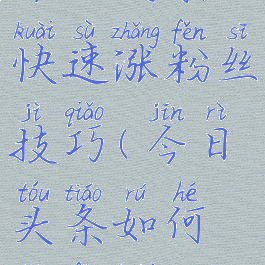 kuài sù zhǎng fěn sī
快速涨粉丝
jì qiǎo jīn rì
技巧(今日
tóu tiáo rú hé
头条如何